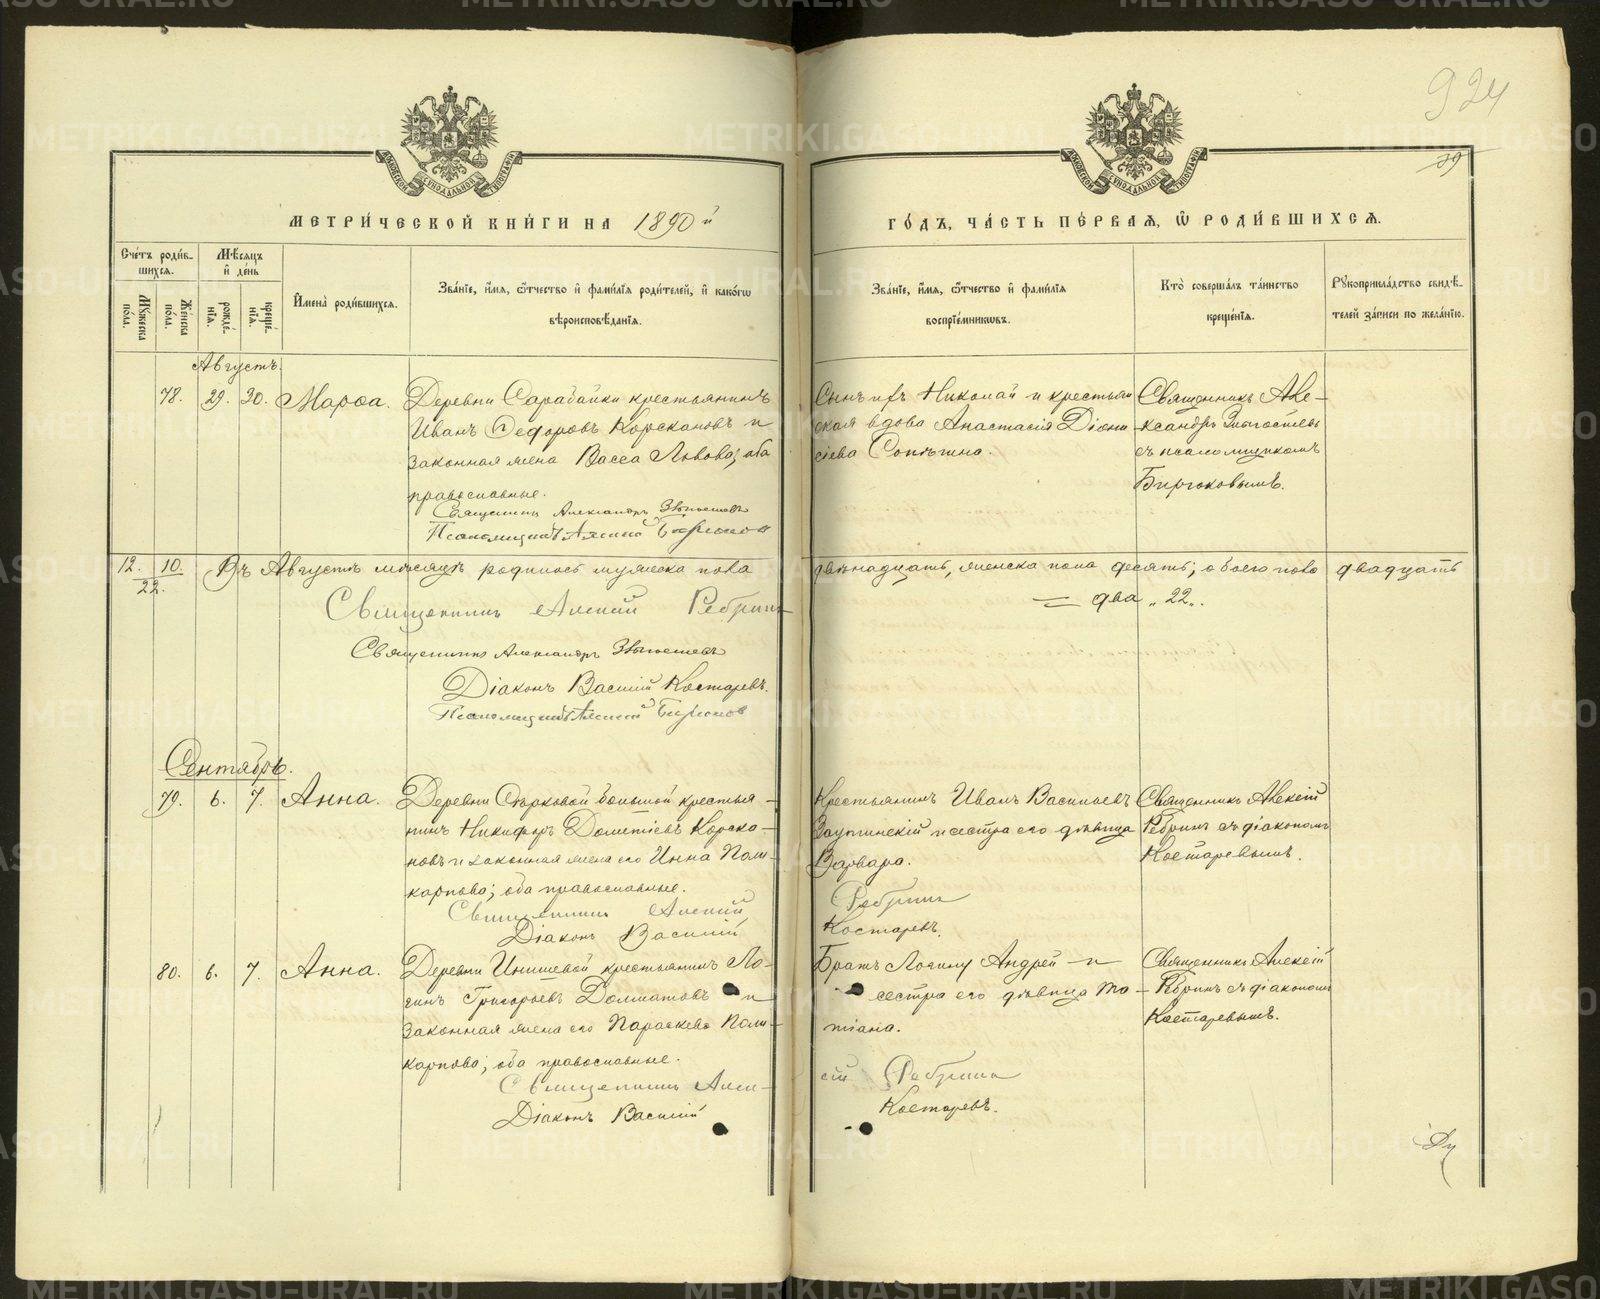 924
79
МОСКОВСКОЙ СѴНОДАЛЬНОЙ ТИПОГРАФІИ
МОСКОВСКОЙ СѴНОДАЛЬНОЙ ТИПОГРАФІИ
МЕТРИ́ЧЕСКОЙ КНИ́ГИ НА 1890й
ГО́ДЪ, ЧА́СТЬ ПЕ́РВАЯ, Ѽ РОДИ́ВШИХСЯ.
Сче́тъ роди́в-
шихся.
Мѣ́сяцъ
и҆ де́нь
Му́жеска по́ла.
Же́нска по́ла.
рожде́-
нїя.
креще́-
нїя.
И҆мена̀ роди́вшихся.
Зва́нїе, и҆́мя, ѻ҆́тчество и҆ фами́лїя роди́телей, и҆ како́гѡ
вѣроисповѣ́данїя.
Зва́нїе, и҆́мя, ѻ҆́тчество и҆ фами́лїя
воспрїе́мникѡвъ.
Кто̀ соверша́лъ та́инство
креще́нїя.
Рꙋкоприкла́дство свидѣ́-
телей за́писи по жела́нїю.
Августъ.
78. 29. 30. Марѳа. Деревни Сарабайки крестьянинъ
Иванъ Ѳедоровъ Корскановъ и
законная жена Васса Львова; оба
православные.
Священникъ Александръ
Псаломщикъ
Сынъ ихъ Николай и крестьян
ская вдова Анастасія Діони
сіева
Священникъ Але-
ксандръ
съ псаломщикомъ
12. 10. Въ Августѣ мѣсяцѣ родилось мужеска пола
22.
двѣнадцать, женска пола десять; обоего пола двадцать
два „22„.
Священникъ Алексій Ребринъ
Священникъ Александръ
Діаконъ Василій Костаревъ.
Псаломщикъ
Сентябрь.
79. 6. 7. Анна. Деревни большой крестья-
нинъ Никифоръ Дометіевъ Корска-
новъ и законная жена его Инна Поли-
карпова; оба православные.
Священникъ Алексій
Діаконъ Василій
Крестьянинъ Иванъ Васильевъ
и сестра его дѣвица
Варвара.
Ребринъ
Костаревъ.
Священникъ Алексій
Ребринъ съ діакономъ
Костаревымъ.
80. 6. 7. Анна. Деревни Инишевой крестьянинъ Ло-
гинъ Григорьевъ Долматовъ и
законная жена его Параскева Поли-
карпова; оба православные.
Священникъ Алек-
Діаконъ Василій
Братъ Логину Андрей и
сестра его дѣвица Та-
тіана.
сій Ребринъ
Костаревъ.
Священникъ Алексій
Ребринъ съ діакономъ
Костаревымъ.
METRIKI.GASO-URAL.RU